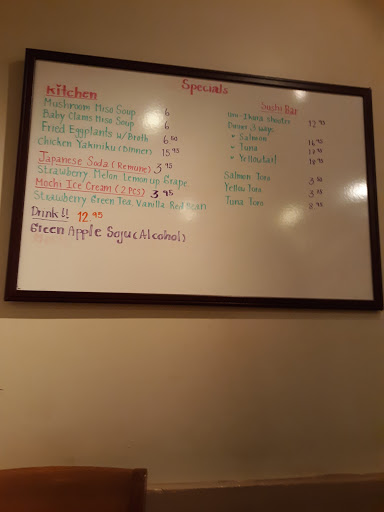 Specials
Kitchen
Mushroom Miso Soup 6
Baby Clams Miso Soup 6
Fried Eggplants w/Broth 6.50
Chicken Yakiniku (Dinner) 15.95
Japanese Soda (Remune) 3.95
Strawberry Melon Lemon up Grape
Mochi Ice Cream (2 Pcs) 3.95
Strawberry Green Tea Vanilla Red Bean
Drink!!
12.95
Green Apple Soju (Alcohol)
Sushi Bar
shooter 12.95
Dinner 3 ways
• Salmon
• Tuna
• Yellowtail
Salmon Toro
Yellow Toro
Tuna Toro 8.95